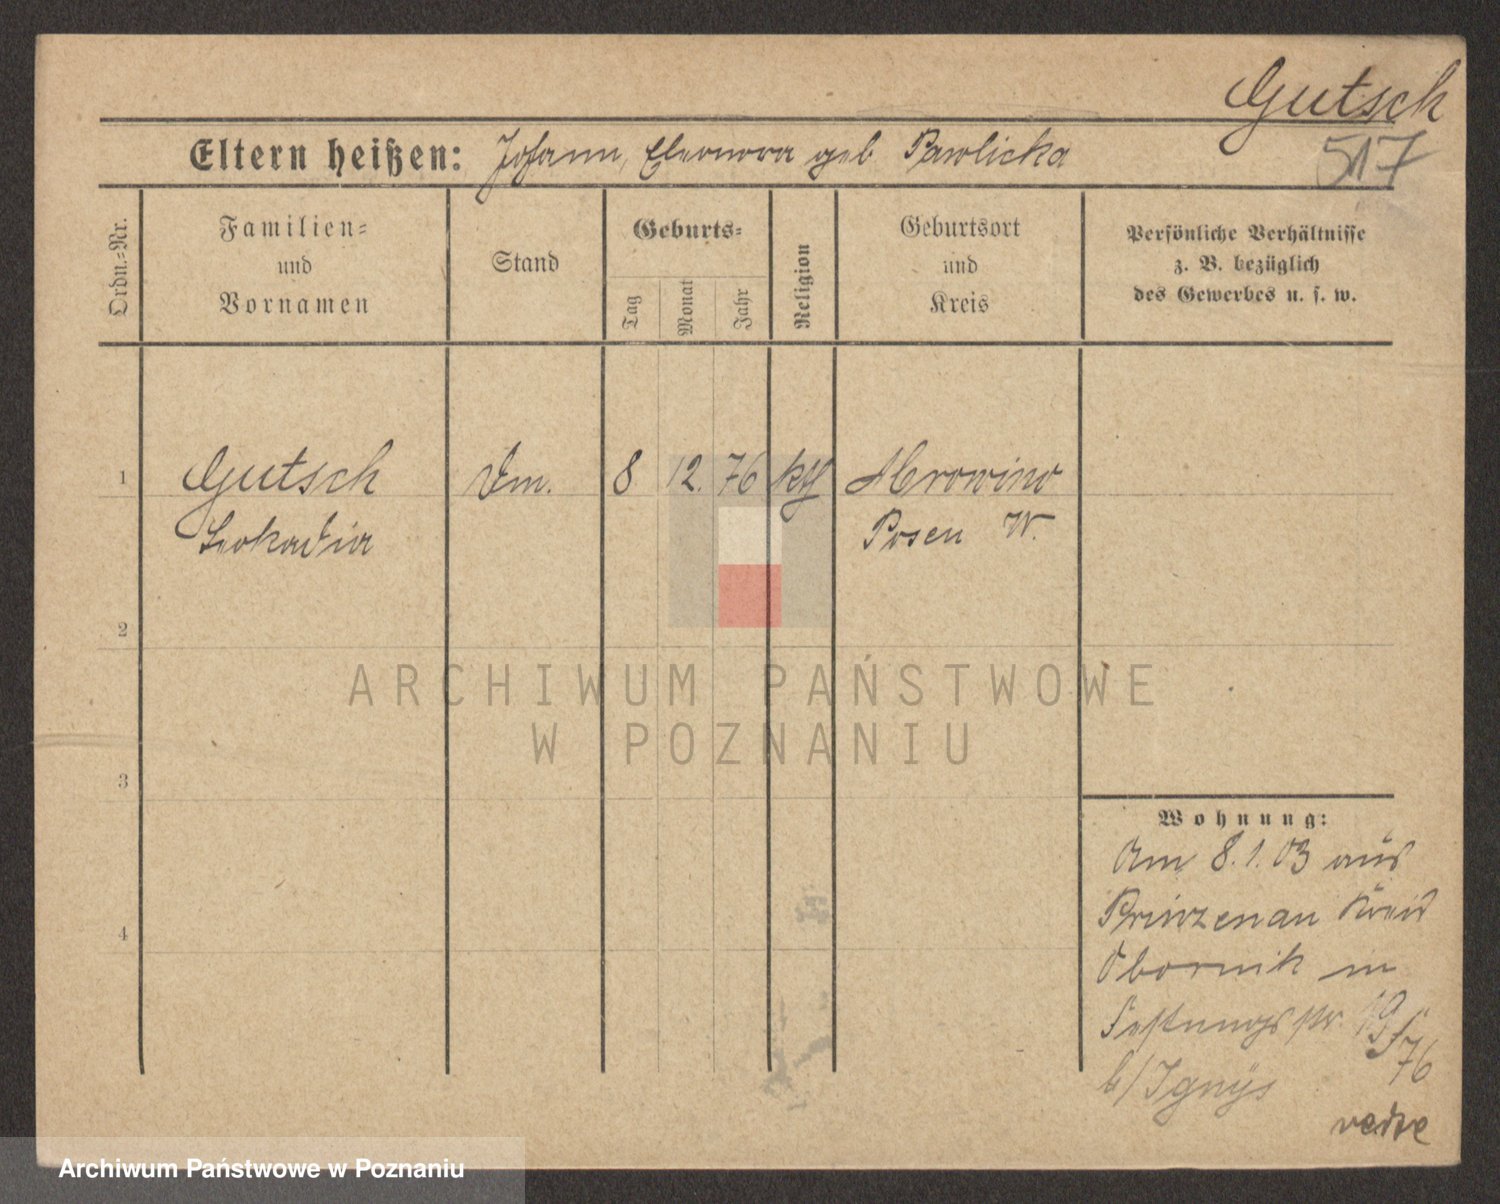 Gutsch
517
Eltern heißen: Johann, Eleonora geb Pawlicka
Ordn.=Nr.
Familien=
und
Vornamen
Stand
Geburts=
Tag
Monat
Jahr
Religion
Geburtsort
und
Kreis
Persönliche Verhältnisse
z. B. bezüglich
des Gewerbes u. s. w.
1
Gutsch
Leokadia
8
12.
76
kth
Mrowino
Posen W.
2
ARCHIWUM PAŃSTWOWE
W POZNANIU
3
Wohnung:
Am 8.1.03 aus
Prinzenau Kreis
4
Obornik in
Festungsstr. 19
76
b/ Ignÿs
Archiwum Państwowe w Poznaniu